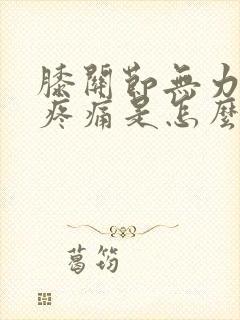 膝關節無力
疼痛是怎麼
葛筠